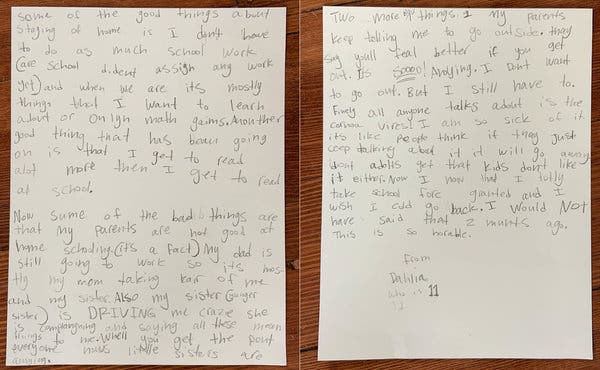 some of the good things about
staying of home is I don't have
to do as much school work
(are school dident assign any work
yet) and when we are its mostly
things that I want to learn
about or onlyn math gaims. Anouther
good thing that has beaun going
on is that I get to read
alot more then I get to read
at school.
Now sume of the bad things are
that my parents are not good at
home schooling. (it's a fact) My dad is
still going to work so its mos-
tly my mom taking kair of me
and my sister. Also my sister (yunger
sister) is DRIVING me craze she
is complaynging and saying all these mean
things to me. Whell you get the pont
everyone nows little sisters are
anoying.
Two more things. 1 my parents
keep telling me to go outside. they
say you'll feal better if you get
out. Its soooo! Anoying. I Dont want
to go out. But I still have to.
Finely all anyone talks about is the
corona vires! I am so sick of it
its like people think if they just
keep talking about it it will go away
dont adolls get that kids don't like
it either. Now I now that I totly
take school fore granted and I
wish I cold go back. I would NOT
have said that 2 munts ago.
This is so horable.
from
Dahlia
who is 11